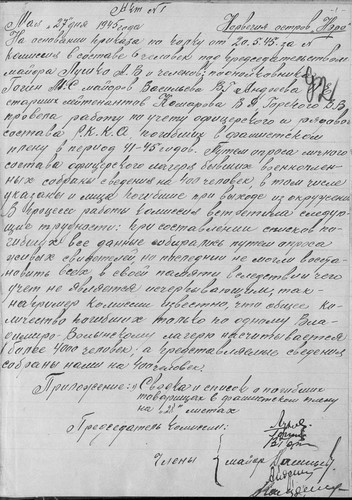 Акт № 1
Мая 27 дня 1945 года Норвегия остров
На основании приказа по полку от 20.5.45. за №
комиссия в составе 5 человек под председательством
майора А.В и членов: подполковник
М.С майоров Васильева В. Андреева
старших лейтенантов Комарова В.Д. В.В.
провела работу по учету офицерского и рядового
состава Р.К.К.А погибших в фашистском
плену в период 41-45 годов. Путем опроса личного
состава офицерского лагеря бывших военноплен-
ных собраны сведения на 400 человек, в том числе
указаны и лица погибшие при выходе из окружения
В процессе работы комиссия встретила следую-
щие трудности: при составлении списков по-
гибших все данные собирались путем опроса
живых свидетелей, но последнии не могли восста-
новить всех в своей памяти вследствии чего
учет не является исчерпывающим, так-
например комиссии известно, что общее ко-
личество погибших только по одному Вла-
димиро-Волынскому лагерю насчитывается
более 4000 человек, а представляемые сведения
собраны нами на 400 человек.
Приложение: Сводка и список о погибших
товарищах в фашистском плену
на 21 листах
Председатель комиссии:
Члены майор